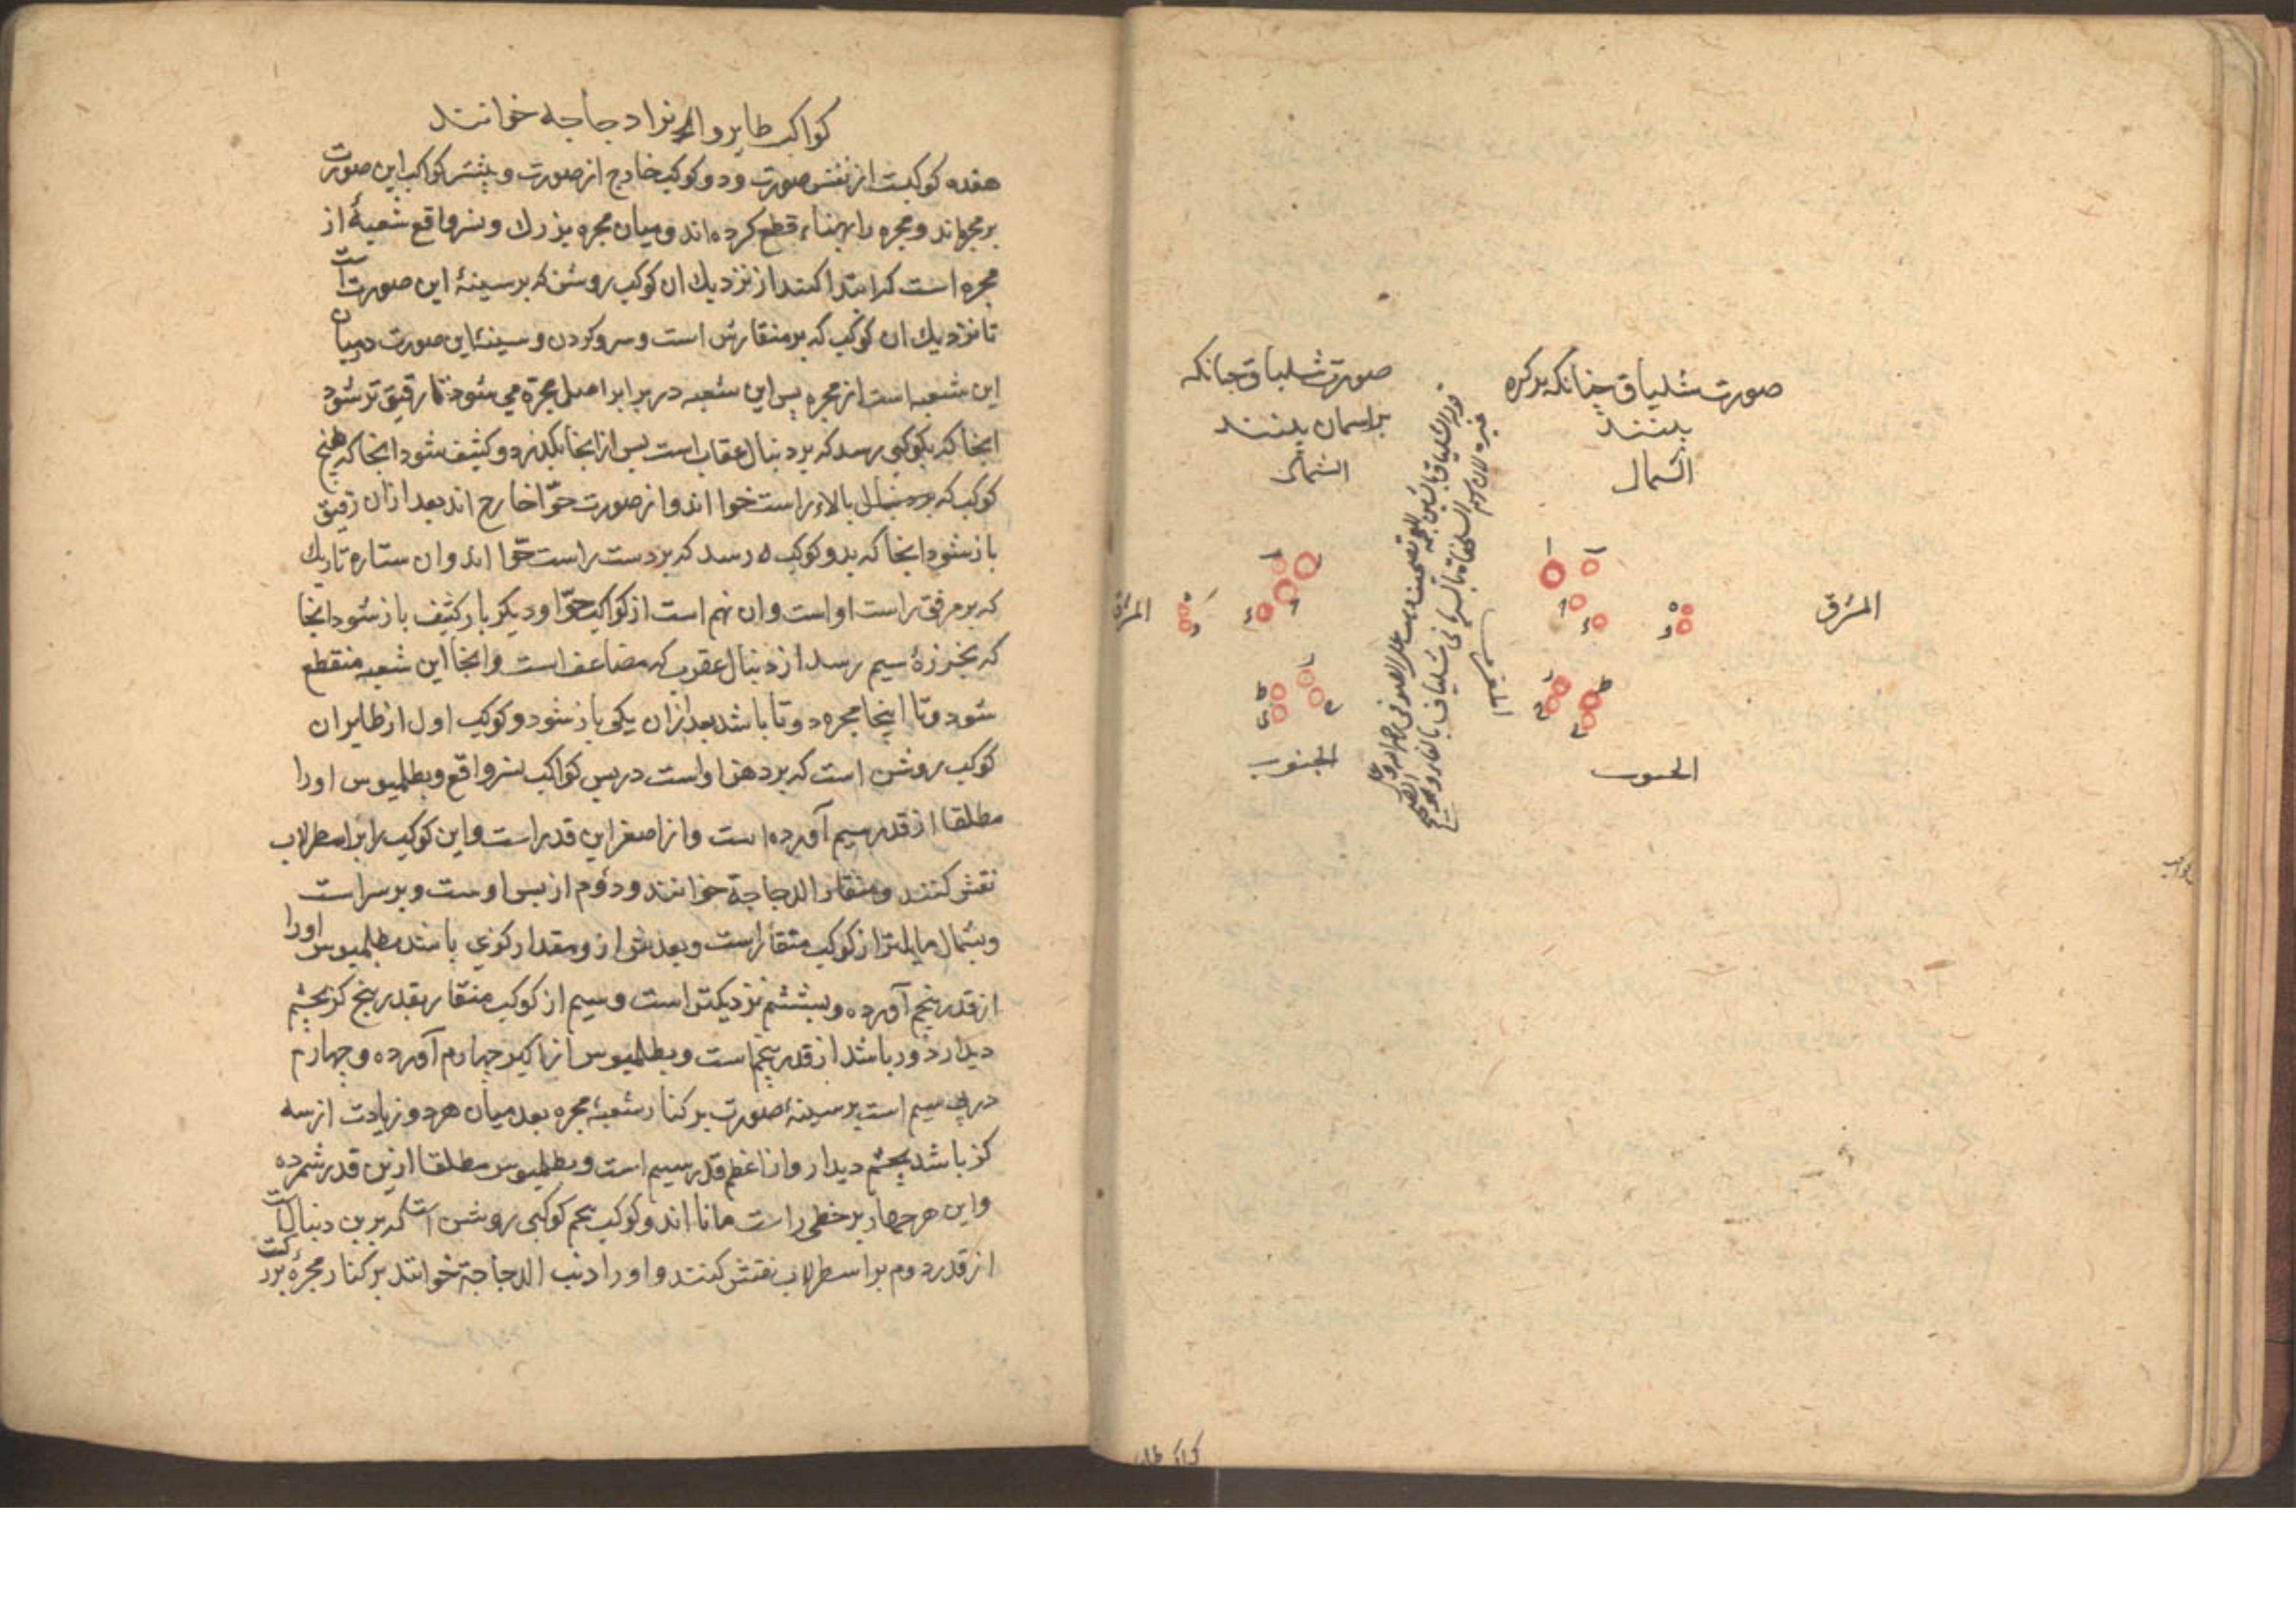 صورت شلیاق چنانکه بر کره
بینند
الشمال
المشرق
الجنوب
صورت شلیاق چنانکه
بر اسمان بینند
الشمال
المشرق
الجنوب
کواکب طایر و انرا دجاجه خوانند
هفده کوکبست از نفس صورت و دو کوکب خارج از صورت و بیشتر کواکب این صورت
بر مجره اند و مجره را بپهناء قطع کرده اند و میان مجره بزرك و نسر واقع شعبهٔ از
مجره است که ابتدا کند از نزدیك ان کوکب روشن که بر سینهٔ این صورت است
تا نزدیك ان کوکب که بر منقارش است و سر و کردن و سینهٔ این صورت درمیان
این شعبه است از مجره پس این شعبه در برابر اصل مجرة می شود تا رقیق تر شود
انجا که بکوکبی رسد که بر دنبال عقاب است پس از انجا بکذرد و کثیف شود انجا که پنج
کوکب که بالاء راست حوا اند و از صورت حوّا خارج اند بعد از ان رقیق
باز شود انجا که بدو کوکب رسد که بر دست راست حوّا اند و ان ستاره تاریك
که بر مرفق راست او است و ان نهم است از کواکب حوّا و دیکر بار کثیف باز شود انجا
که بخرزهٔ سیم رسد از دنبال عقرب که مضاعف است و انجا این شعبه منقطع
شود و تا اینجا مجره دوتا باشد بعد از ان یکی باز شود و کوکب اول از طایر ان
کوکب روشن است که بر دهن او است در پس کواکب نسر واقع و بطلمیوس او را
مطلقا از قدر سیم آورده است و از اصغر این قدر است و این کوکب را بر اسطرلاب
نقش کنند و منقار الدجاجة خوانند و دوّم از پس اوست و بر سر است
و بشمال مایلتر از کوکب منقار است و بعدش از و مقدار کزی باشد بطلمیوس او را
از قدر پنجم آورده و بششم نزدیکتر است و سیم از کوکب منقار بقدر پنج کز بچشم
دیدار دور باشد از قدر پنجم است و بطلمیوس از اکبر چهارم آورده و چهارم
در پی سیم است بر سینهٔ صورت بر کنار شعبهٔ مجره بعد میان هر دو زیادت از سه
کز باشد بچشم دیدار و از اعظم قدر سیم است و بطلمیوس مطلقا ازین قدر شمرده
و این هر چهار بر خطی راست مانا اند و کوکب پنجم کوکبی روشن است که برین دنبالست
از قدر دوم بر اسطرلاب نقش کنند و او را ذنب الدجاجة خوانند بر کنار مجرهٔ بزرکست